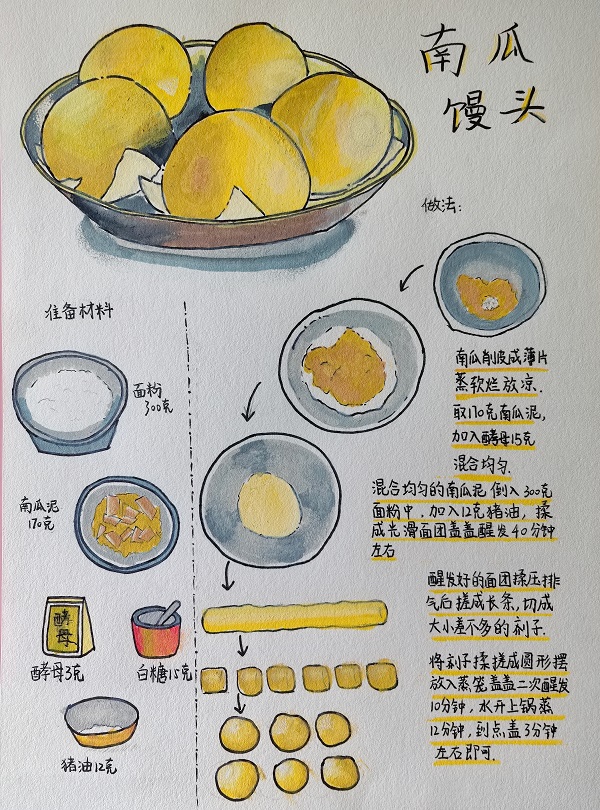 南瓜
馒头
做法:
准备材料
面粉
300克
南瓜泥
170克
酵母
酵母3克
白糖15克
猪油12克
南瓜削皮成薄片
蒸软烂放凉.
取170克南瓜泥,
加入酵母15克
混合均匀.
混合均匀的南瓜泥倒入300克
面粉中,加入12克猪油,揉
成光滑面团盖盖醒发40分钟
左右
醒发好的面团揉压排
气后搓成长条,切成
大小差不多的剂子.
将剂子揉搓成圆形摆
放入蒸笼盖盖二次醒发
10分钟,水开上锅蒸
12分钟,到点盖3分钟
左右即可.